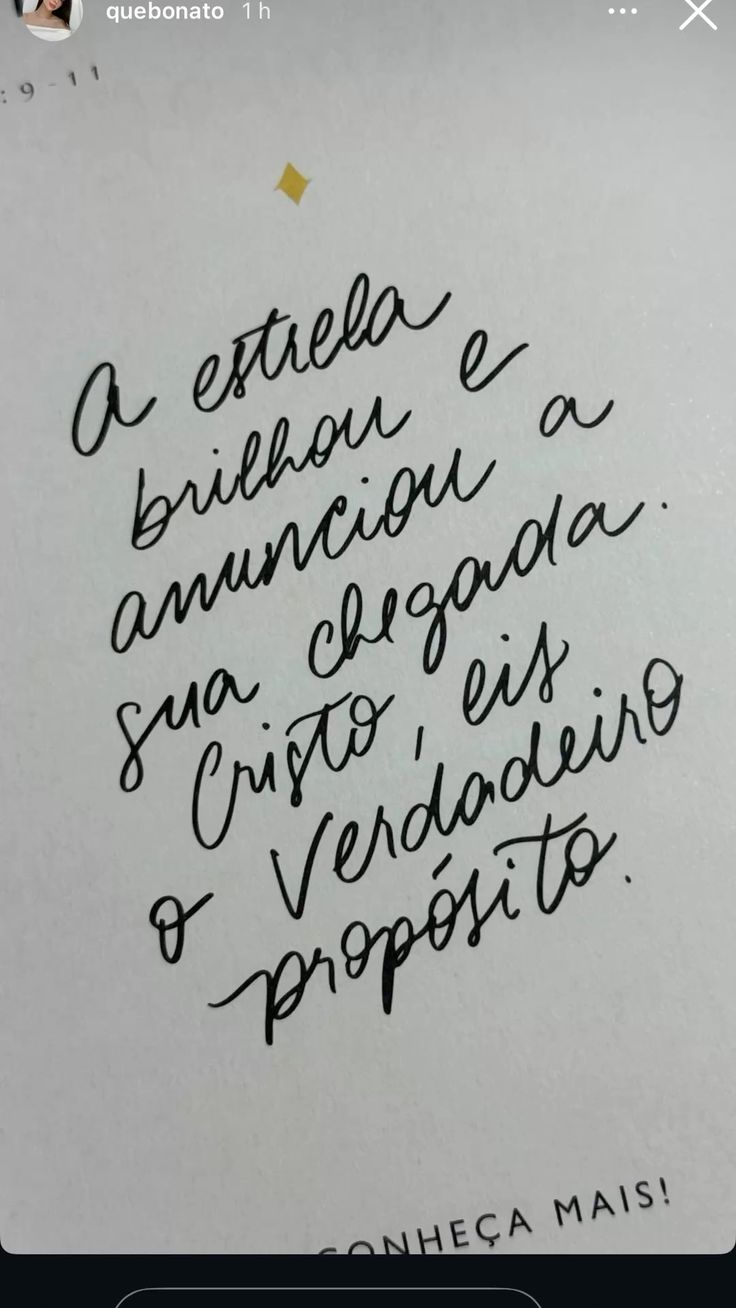 quebonato 1 h
: 9 - 11
A estrela
brilhou e
anunciou a
sua chegada.
Cristo, eis
o Verdadeiro
propósito.
CONHEÇA MAIS!